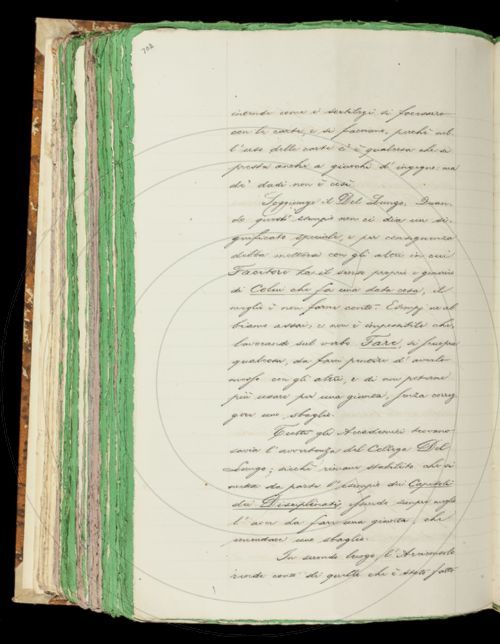 702
intende come i sortilegi si facessero
con le carte, e si facciano, perchè nel-
l'uso delle carte c'è qualcosa che si
presta anche a giuochi d'ingegno: ma
de' dadi non è così.
Soggiunge il Del Lungo. Quan-
do questo esempio non ci dia un si-
gnificato speciale, e per conseguenza
debba mettersi con gli altri in cui
Facitore ha il senso proprio e generico
di Colui che fa una data cosa, il
meglio è non farne conto. Esempj ne ab-
biamo assai; e non è impossibile che,
lavorando sul verbo Fare, si
qualcosa, da farci di averlo
messo con gli altri, e di non poterne
più usare per una giunta, senza correg-
gere uno sbaglio.
Tutti gli Accademici trovano
savia l'avvertenza del Collega Del
Lungo; sicchè rimane stabilito che si
metta da parte l'esempio dei Capitoli
dei Disciplinati, essendo sempre meglio
l'aver da fare una giunta, che
emendare uno sbaglio.
In secondo luogo l'
rende conto di quello che è stato fatto